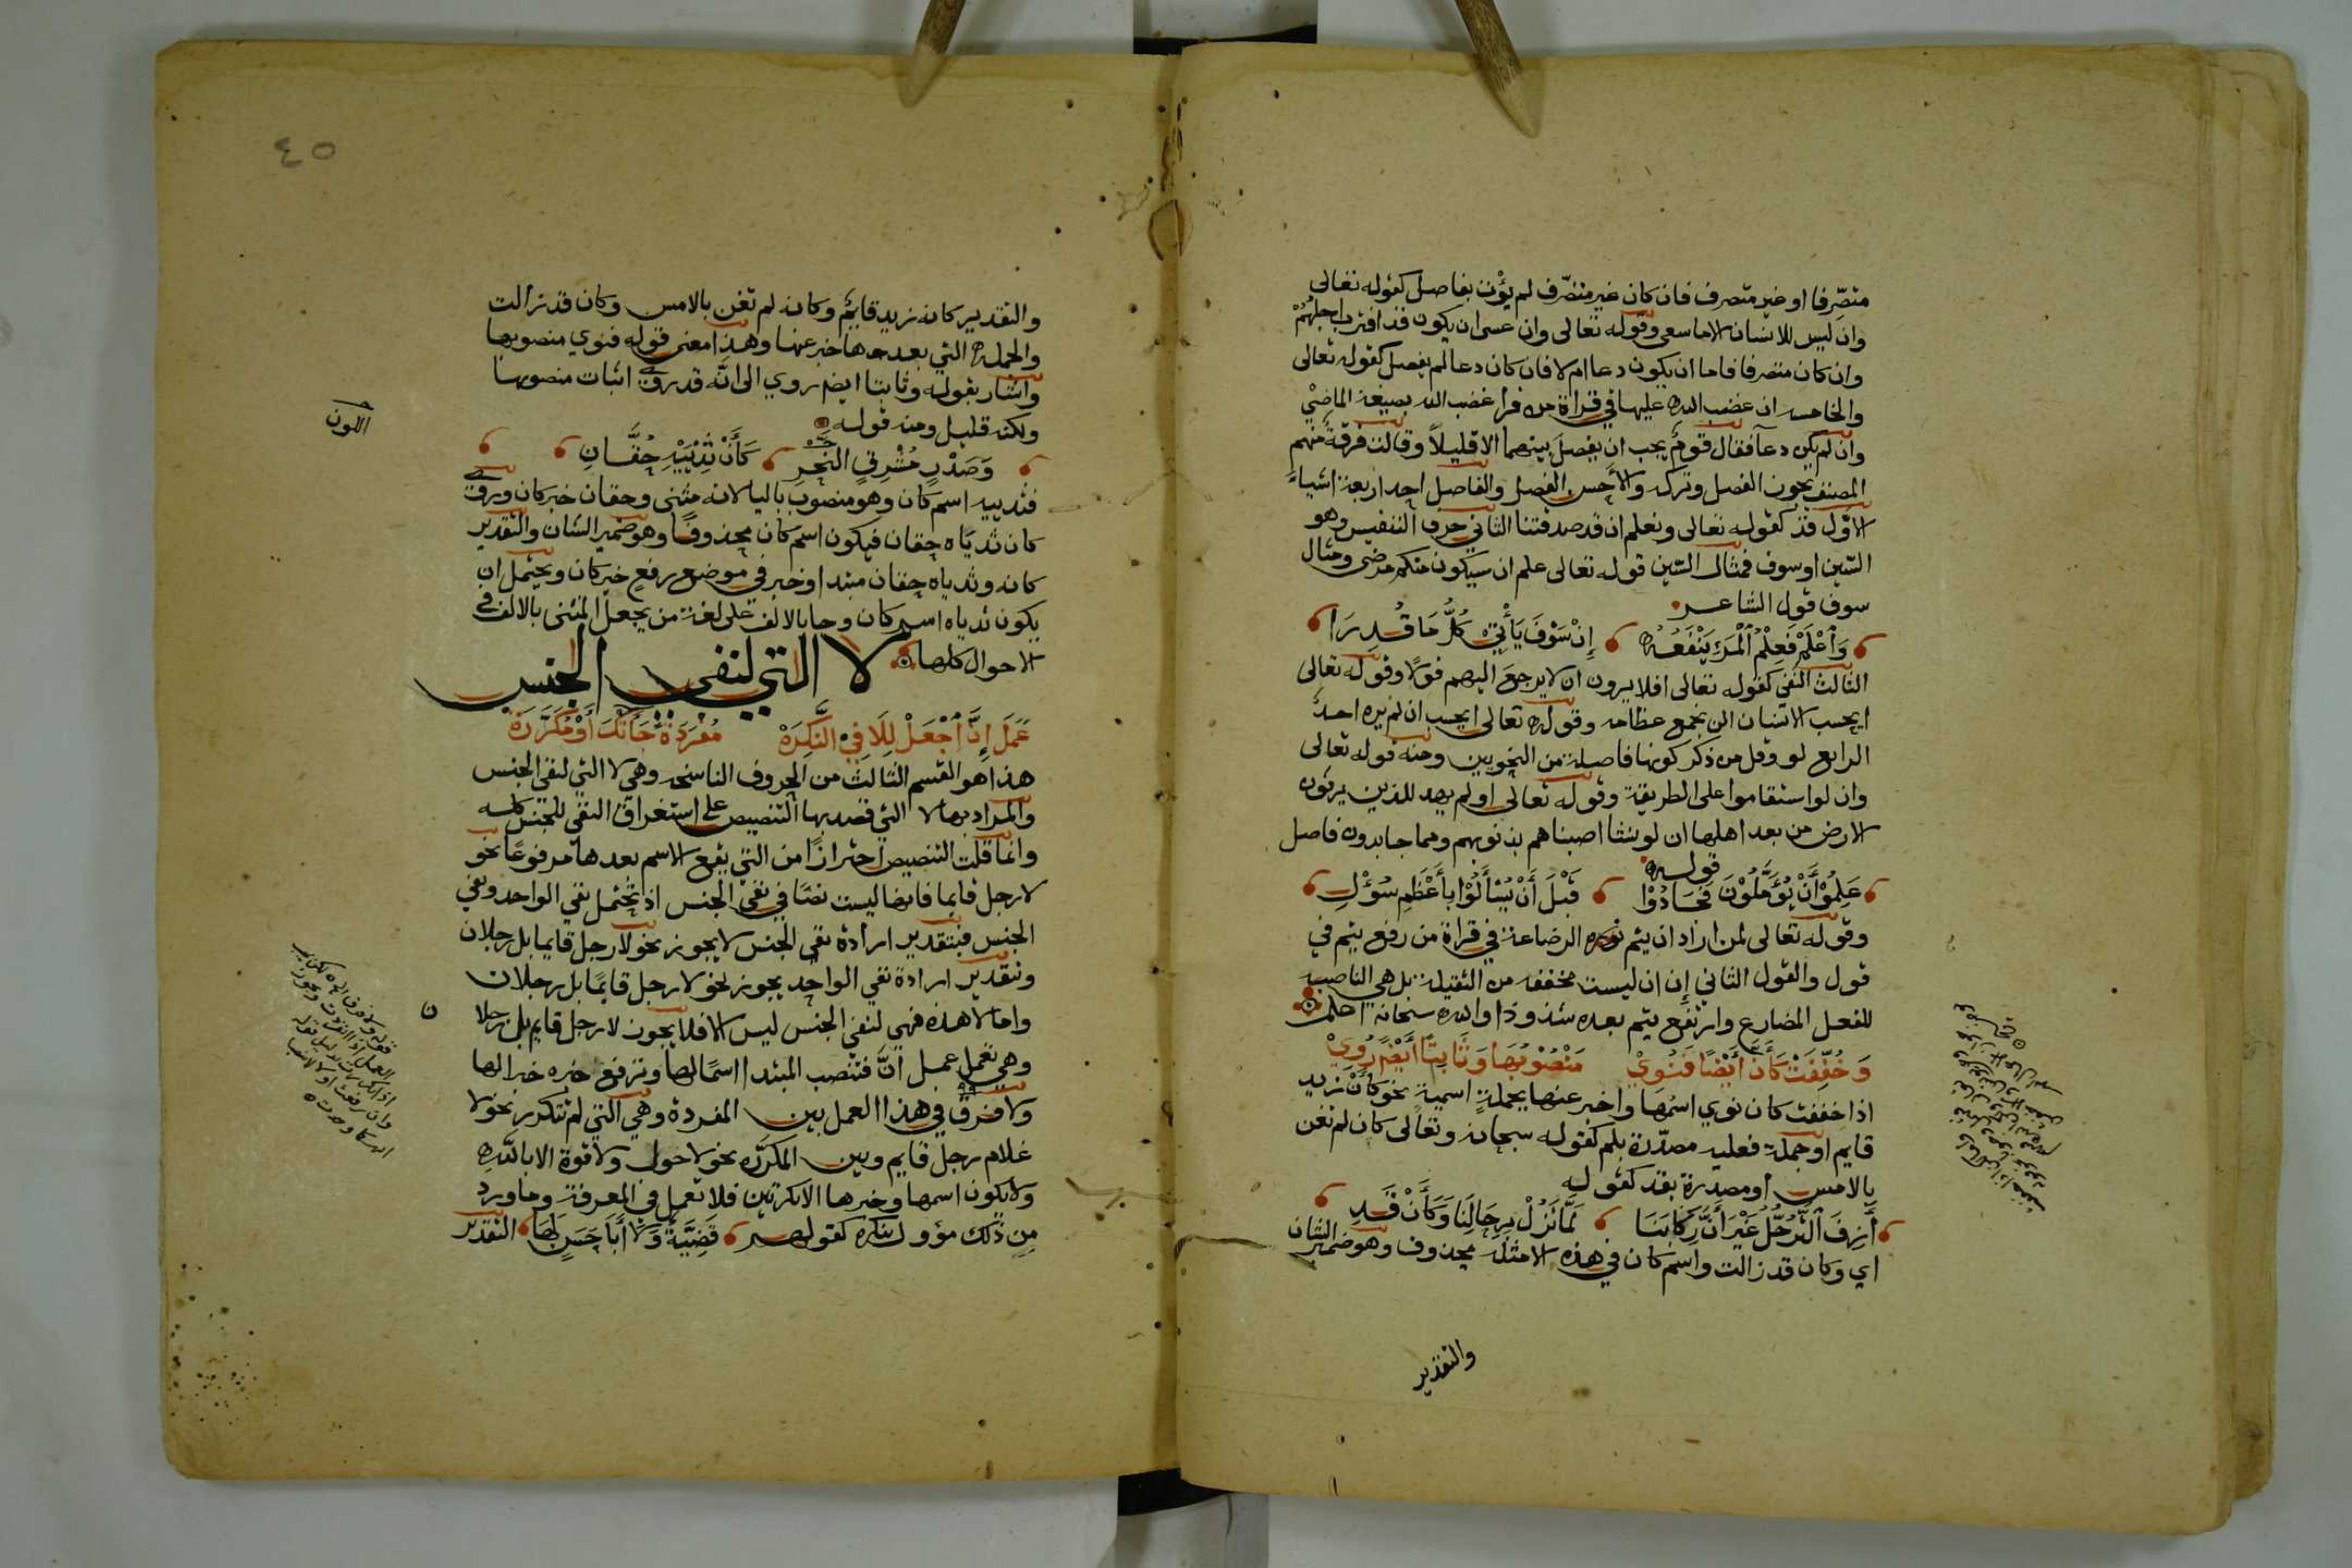 متصرفا او غير متصرف فان كان غير متصرف لم يؤت بفاصل كقوله تعالى
وان ليس للانسان الا ما سعى وقوله تعالى وان عسى ان يكون قد اقترب اجلهم
وان كان متصرفا فاما ان يكون دعا ام لا فان كان دعا لم يفصل كقوله تعالى
والخامسه ان غضب الله عليها في قراة من قرا غضب الله بصيغة الماضي
وان لم يكن دعا فقال قوم يجب ان يفصل بينهما الا قليلاً وقالت فرقة منهم
المصنف يجوز الفصل وتركه والاحسن الفصل والفاصل احد اربعة اشياء
الاول قد كقوله تعالى ونعلم ان قد صدقتنا الثاني حرف التنفيس وهو
السين او سوف فمثال السين قوله تعالى علم ان سيكون منكم مرضى ومثال
سوف قول الشاعر
وَاعْلَمْ فَعِلْمُ الْمَرْءِ يَنْفَعُهُ إِنْ سَوْفَ يَأْتِي كُلُّ مَا قُدِرَا
الثالث النفي كقوله تعالى افلا يرون ان لا يرجع اليهم قولا وقوله تعالى
ايحسب الانسان الن نجمع عظامه وقوله تعالى ايحسب ان لم يره احد
الرابع لو وقل من ذكر كونها فاصلة من النحويين ومنه قوله تعالى
وان لو استقاموا على الطريقة وقوله تعالى او لم يهد للذين يرثون
الارض من بعد اهلها ان لو نشا اصبناهم بذنوبهم ومما جا بدون فاصل
قوله
عَلِمُوْا أَنْ يُؤَمَّلُوْنَ فَجَادُوْا قَبْلَ أَنْ يُسْأَلُوْا بِأَعْظَمِ سُؤْلِ
وقوله تعالى لمن اراد ان يتم الرضاعة في قراة من رفع يتم في
قول والقول الثاني إن ان ليست مخففه من الثقيلة بل هي الناصبه
للفعل المضارع وارتفع يتم بعده شذوذا والله سبحانه اعلم
وَخُفِّفَتْ كَأَنَّ أَيْضًا فَنُوِيْ مَنْصُوْبُهَا وَثَابِتًا أَيْضًا رُوِيْ
اذا خففت كان نوي اسمُها واخبر عنها بجملةٍ اسمية نحو كأن زيد
قايم او جملة فعليه مصدرة بلم كقوله سبحانه وتعالى كان لم تغن
بالامس او مصدرة بقد كقوله
أَزِفَ التَّرَحُّلُ غَيْرَ أَنَّ رِكَابَنَا لَمَّا تَزُلْ بِرِحَالِنَا وَكَأَنْ قَدِ
اي وكان قد زالت واسم كان في هذه الامثلة محذوف وهو ضمير الشان
والتقدير
٤٥
والتقدير كانه زيد قايم وكانه لم تغن بالامس وكان قد زالت
والجمله التي بعدها خبر عنها وهذا معنى قوله فنوي منصوبها
واشار بقوله وثابتا ايضا روي الى انه قد روي اثبات منصوبها
ولكنه قليل ومنه قوله
وَصَدْرٍ مُشْرِقِ النَّحْرِ كَأَنْ ثَدْيَيْهِ حُقَّانِ
فثدييه اسم كان وهو منصوب باليا لانه مثنى وحقان خبر كان وروي
كان ثدياه حقان فيكون اسم كان محذوفا وهو ضمير الشان والتقدير
كانه وثدياه حقان مبتدا وخبر في موضع رفع خبر كان ويحتمل ان
يكون ثدياه اسم كان وجا بالالف على لغة من يجعل المثنى بالالف في
الاحوال كلها
لا التي لنفي الجنس
عَمَلَ إِنَّ اجْعَلْ لِلَا فِيْ النَّكِرَهْ مُفْرَدَةً جَاءَتْكَ أَوْ مُكَرَّرَهْ
هذا هو القسم الثالث من الحروف الناسخه وهي لا التي لنفي الجنس
والمراد بها لا التي قصد بها التنصيص على استغراق النفي للجنس كله
وانما قلت التنصيص احترازا من التي يقع الاسم بعدها مرفوعًا نحو
لا رجل قايما فانها ليست نصا في نفي الجنس اذ تحتمل نفي الواحد ونفي
الجنس فبتقدير ارادة نفي الجنس لا يجوز نحو لا رجل قايما بل رجلان
وبتقدير ارادة نفي الواحد يجوز نحو لا رجل قايمًا بل رجلان
واما لا هذه فهي لنفي الجنس ليس الا فلا يجوز لا رجل قايم بل رجلا
وهي تعمل عمل انَّ فتنصب المبتدا اسمًا لها وترفع خبره خبرا لها
ولا فرق في هذا العمل بين المفردة وهي التي لم تتكرر نحو لا
غلام رجل قايم وبين المكررَّه نحو لا حول ولا قوة الا بالله
ولا يكون اسمها وخبرها الا نكرتين فلا تعمل في المعرفة وما ورد
من ذلك مؤول بنكره كقولهم قَضِيَّةٌ وَلَا أَبَا حَسَنٍ لَهَا التقدير